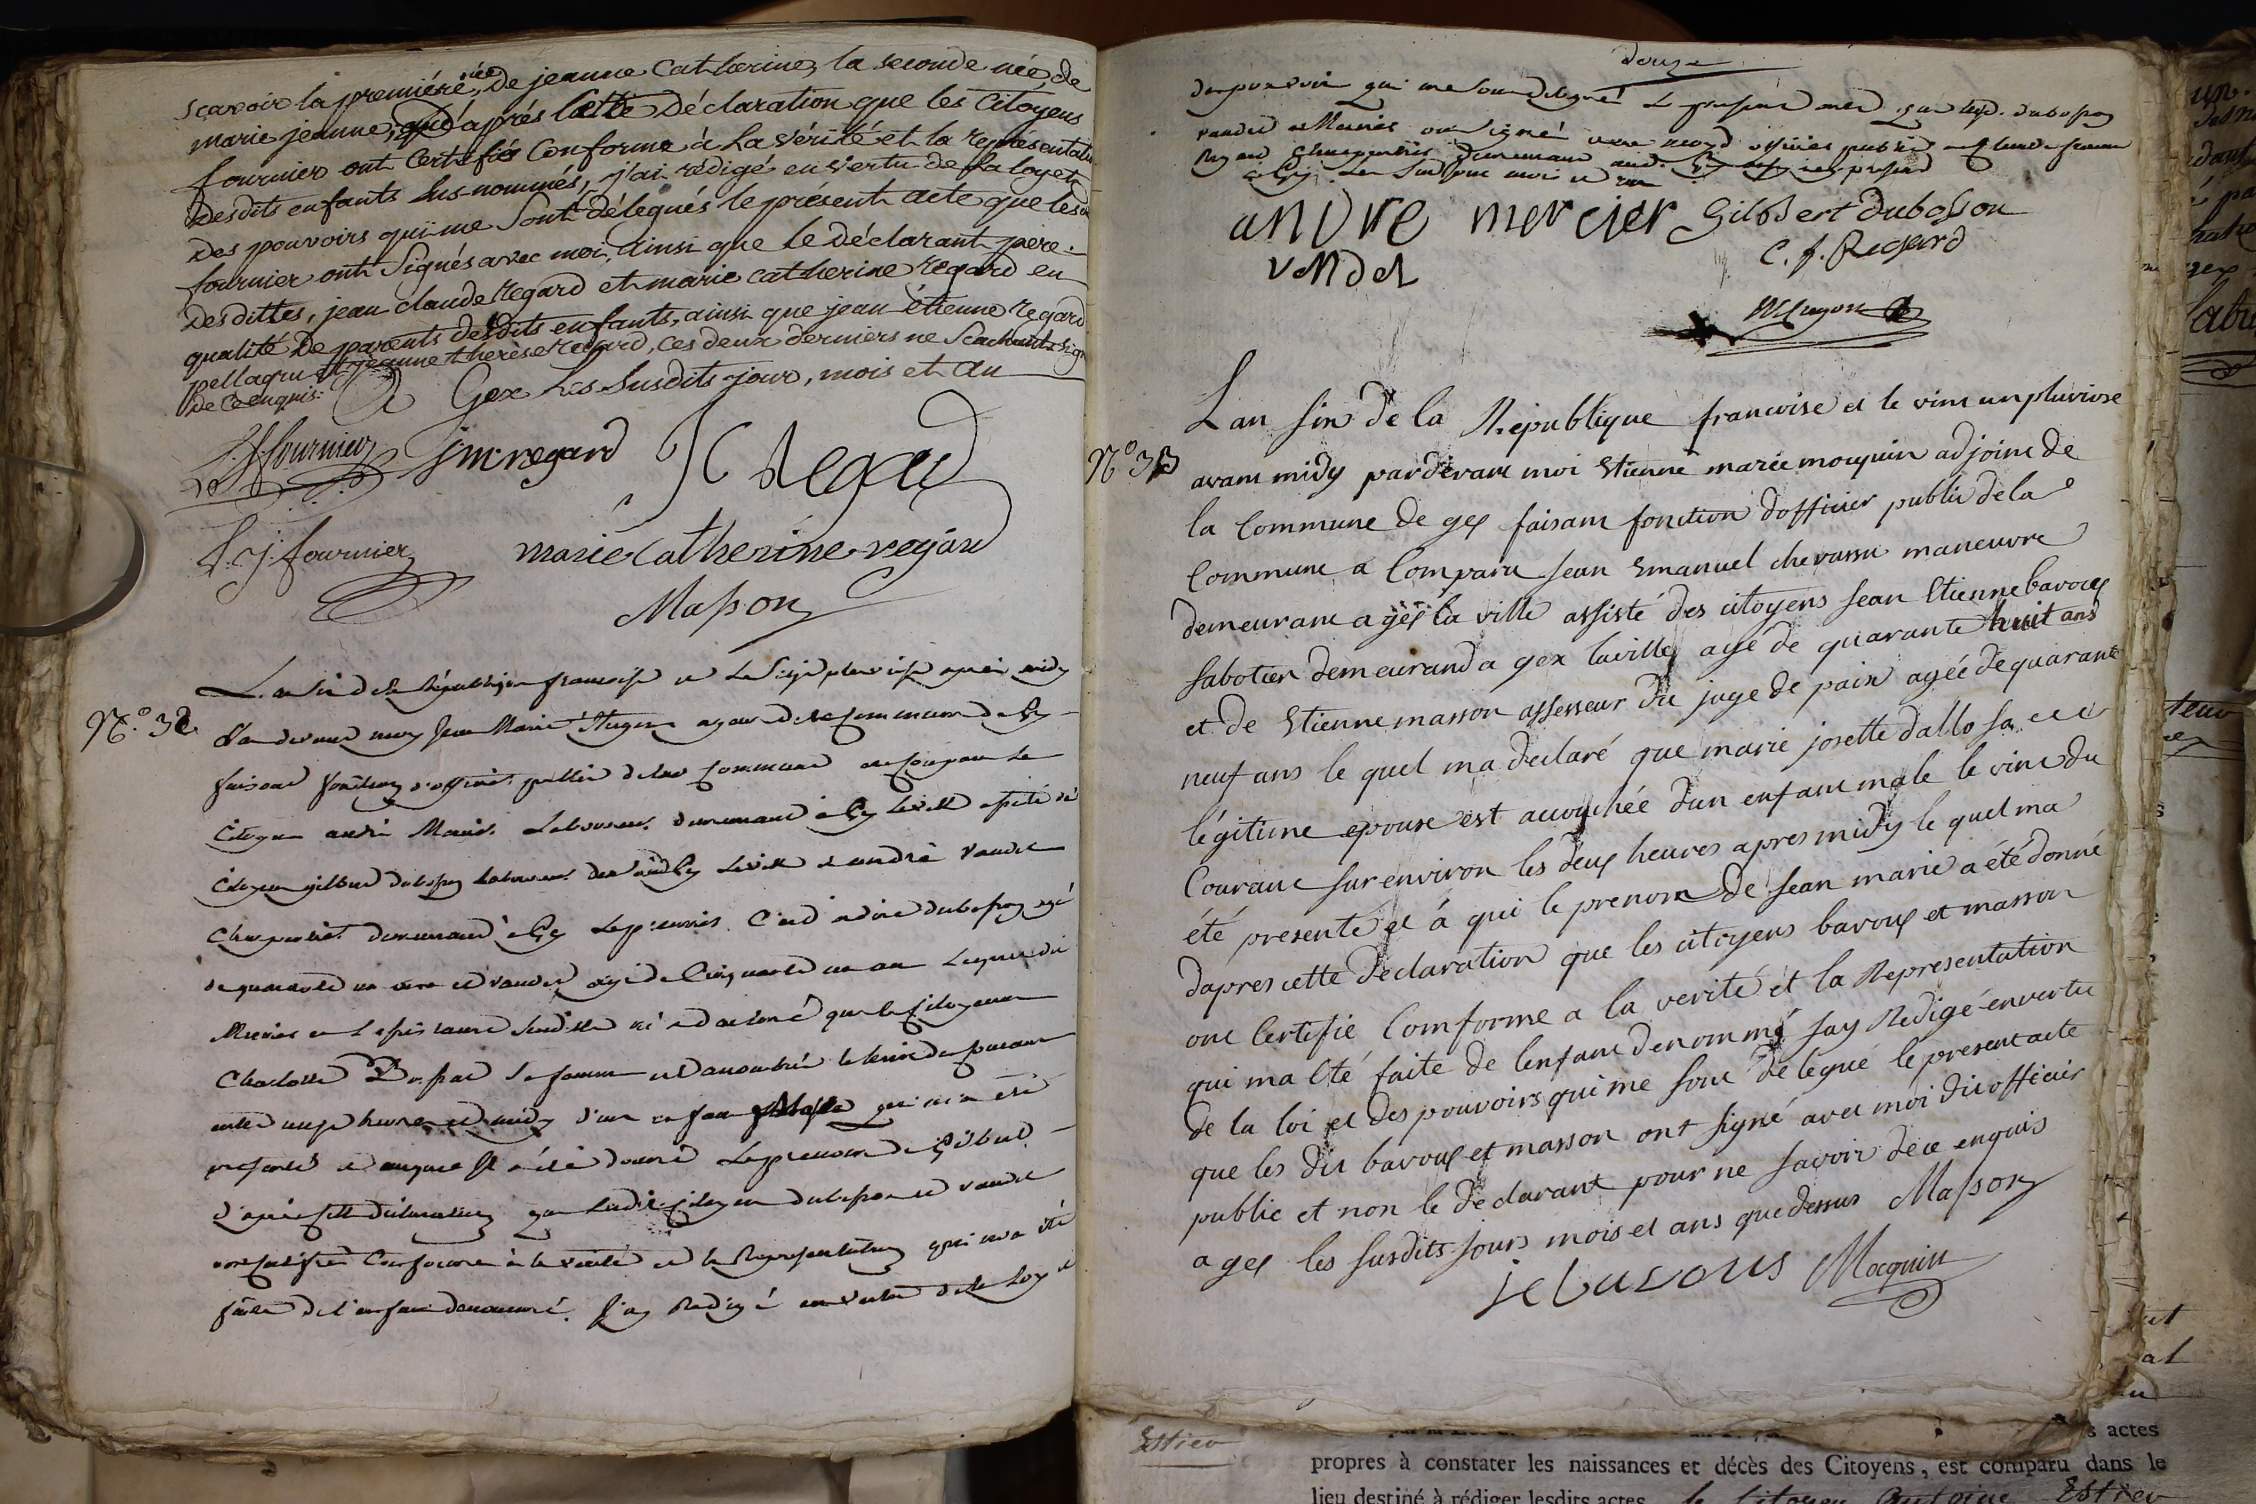 sçavoir la première née de jeanne Catherine, la seconde née de
marie jeanne, après cette déclaration que les Citoyens
fournier ont Certifiés Conforme à la vérité et la représentation
desdits enfants sus-nommés, j'ai rédigé en vertu de la loy et
des pouvoirs qui me sont délégués le présent acte que lesd
fournier ont signés avec moi, ainsi que le déclarant père
desdittes, jean claude regard et marie catherine regard en
qualité de parents desdits enfants, ainsi que jean étienne regard
pellagru et jeanne thérèse regard, ces deux derniers ne Scachants sign
de ce enquis.
à Gex les susdits jour, mois et an
fournier jm regard JC Regard
fournier marie Catherine regard
Masson
N.º 32
L'an six de la République françoise et le Seize pluviose après midy
Par devant moy Jean Marie agent de la Commune de Gex
faisant fonction d'officier public de la Commune a Comparu le
Citoyen andré Mercier Laboureur demeurant à Gex la ville assisté du
Citoyen gilbert dubosson laboureur demt à Gex la ville et andré vandel
Charpentier demeurant à Gex le premier C'est à dire dubosson agé
de quarante un ans et vandel agé de Cinquante un an Lequel dit
Mercier en l'assistance susditte m'a déclaré que la Citoyenne
Charlotte sa femme est accouchée le
entre onze heures et midy d'un enfant Male qui m'a été
présenté et auquel il a été donné le prénom de Gilbert
d'après cette déclaration que lesdits Citoyen dubosson et vandel
ont Certifié Conforme à la vérité et la Représentation qui m'a été
faite de l'enfant dénommé. J'ay Rédigé en vertu de la loy et
douze
des pouvoirs qui me sont délégués le présent acte que lesd. dubosson
vandel et Mercier ont signé avec moy officier public
andré mercier Gilbert dubosson
vandel C. f. Regard
N.º 33
L'an six de la République francoise et le vint un pluviose
avant midy pardevant moi Etienne marie mocquin adjoint de
la Commune de gex faisant fonction dofficier public de la
Commune a Comparu Jean Emanuel chevassu maneuvre
demeurant a gex la ville assisté des citoyens Jean Etienne bavoux
sabotier demeurand a gex laville agé de quarante huit ans
et de Etienne masson assesseur du juge de paix agée de quarante
neuf ans le quel ma declaré que marie josette dallo sa
légitime epouse est accouchée dun enfant male le vint du
Courant sur environ les deux heures apres midy le quel ma
été presenté et à qui le prenom de Jean marie a été donné
dapres cette declaration que les citoyens bavoux et masson
ont Certifié Comforme a la verité et la Representation
qui ma été faite de lenfant denommé Jay Redigé en vertu
de la loi et des pouvoirs qui me sont délegué le present acte
que les dit bavoux et masson ont signé avec moi dit officier
public et non le declarant pour ne savoir de ce enquis
a gex les susdits jours mois et ans que dessus Masson
je bavous Mocquin
Estieu
propres à constater les naissances et décès des Citoyens, est comparu dans le
lieu destiné à rédiger lesdits actes le Citoyen Antoine Estieu